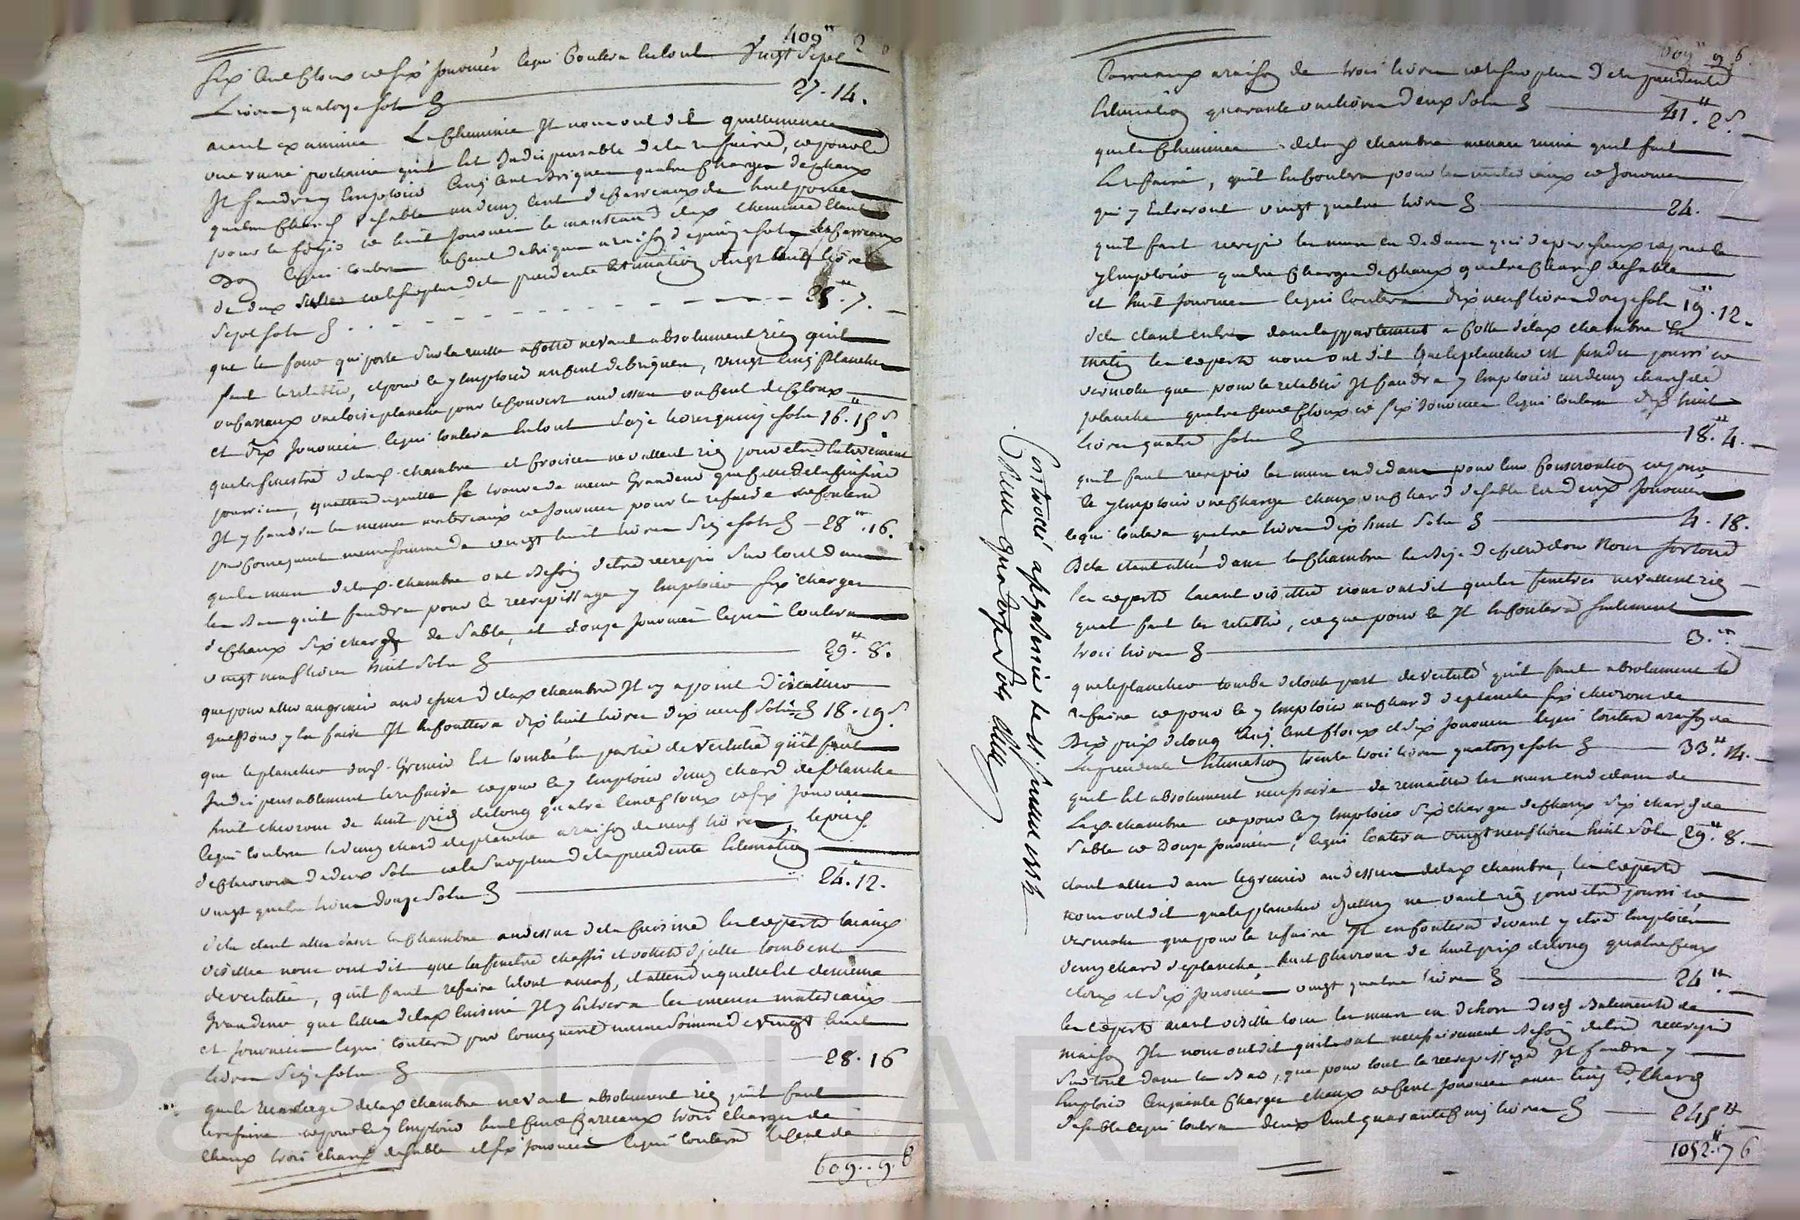 409 tt 2
six cent cloux et six journées ce qui coutera en tout vingt sept
Livres quatorze sols 27. 14.
aiant examiné la cheminée ils nous ont dit qu'elle menace
une ruine prochaine qu'il est indispensable de la refaire, et pour ce
il faudra y emploier cinq cent briques quatre charges de chaux
quatre chards de sable un demy cent de carreaux de huit pouces
pour le foyer et huit journées le manteau de lad cheminée étant
bon ce qui coutera le cent de briques a raison de quinze sols les carreaux
de deux sols et le surplus de la precedente estimation vingt huit livres
sept sols 28 tt 7.
que le four qui porte sur la ruelle a coté ne vaut absolument rien qu'il
faut le retablir, et pour ce y emploier un cent de briques, vingt cinq planches
et dix journées ce qui coutera en tout seize livres quinze sols 16 tt 15 s
que la fenestre de lad chambre et croisée ne vallent rien pour etre entierement
pourries, qu'attendu qu'elle se trouve de meme grandeur que celle de la cuisine
il y faudra les memes materiaux et journées pour la refaire et coutera
par consequent meme somme de vingt huit livres seize sols 28 tt 16.
que les murs de lad chambre ont besoin d'etre recrepis sur tout dans
le bas qu'il faudra pour le recrepissage y emploier six charges
de chaux six chards de sable, et douze journées ce qui coutera
vingt neuf livres huit sols 29 tt 8.
que pour aller au grenier au dessus de lad chambre il n'y a point d'escallier
que pour y en faire il en couttera dix huit livres dix neuf sols 18 - 19 s
que le plancher dud. grenier est tombé en partie de vetusté qu'il faut
indispensablement le refaire et pour ce y emploier demy chard de planche
huit chevrons de huit pieds de long quatre cent cloux et six journées
ce qui coutera le demy chard de planche a raison de neuf livres, la piece
de chevrons de deux sols et le surplus de la precedente estimation
vingt quatre livres douze sols 24 tt 12.
de la etant allés dans la chambre au dessus de la cuisine les experts l'aiant
visittée nous ont dit que la fenetre chassis et vollets d'icelle tombent
de vetusté, qu'il faut refaire le tout a neuf, et attendu qu'elle est de meme
grandeur que celle de lad cuisine il y entrera les memes materiaux
et journées ce qui coutera par consequent meme somme de vingt huit
livres seize sols 28. 16
que le carrelage de lad chambre ne vaut absolument rien qu'il faut
le refaire et pour ce y emploier huit cent carreaux trois charges de
chaux trois chards de sable et six journées ce qui coutera le cent de
609 .. 9. 6
609 tt 9. 6.
Carreaux a raison de trois livres et le surplus de la precedente
Estimation quarante une livres deux sols 41 tt 2 s
que la cheminée de lad chambre menace ruine qu'il faut
la refaire, qu'il en coutera pour les materiaux et journées
qui y entreront vingt quatre livres 24.
qu'il faut recrepir les murs en dedans qui deperissent et pour ce
y emploier quatre charges de chaux quatre chards de sable
et huit journées ce qui coutera dix neuf livres douze sols 19 tt 12.
de la etant entrés dans l'appartement a cotté de lad chambre
les experts nous ont dit que le plancher est fendu pourri et
vermolu que pour le retablir il faudra y emploier un demy chard de
planche quatre cent cloux et six journées ce qui coutera dix huit
livres quatre sols 18 tt 4.
qu'il faut recrepir les murs en dedans pour leur conservation et pour
ce y emploier une charge chaux un chard de sable et deux journées
ce qui coutera quatre livres dix huit sols 4. 18.
De la etant allés dans la chambre
les experts l'aiant visittée nous ont dit que les fenetres ne vallent rien
qu'il faut les retablir, et que pour ce il en coutera seulement
trois livres 3. tt
que le plancher tombe de toute part de vetusté qu'il faut absolument le
refaire et pour ce y emploier un chard de planche six chevrons de
dix pieds de long cinq cent cloux et dix journées ce qui coutera a raison de
la precedente estimation trente trois livres quatorze sols 33 tt 14.
qu'il est absolument necessaire de remaitter les murs en dedans de
lad chambre et pour ce y emploier six charges de chaux six chards de
sable et douze journées, ce qui coutera vingt neuf livres huit sols 29 tt 8.
etant allés dans le grenier au dessus de lad chambre, les experts
nous ont dit que le plancher d'icelluy ne vaut rien pour etre pourri et
vermolu que pour le refaire il en coutera devant y etre emploiés
demy chard de planche, huit chevrons de huit pieds de long quatre cent
cloux et six journées vingt quatre livres 24 tt
les experts aiant visitté tous les murs en dehors desd batiments de
maison ils nous ont dit qu'ils ont necessairement besoin d'etre recrepis
sur tout dans le bas, que pour tout le recrepissage il faudra y
emploier cinquante charges chaux et cent journées avec cinq chards
de sable ce qui coutera deux cent quarante cinq livres 245 tt
1052 tt 7 6